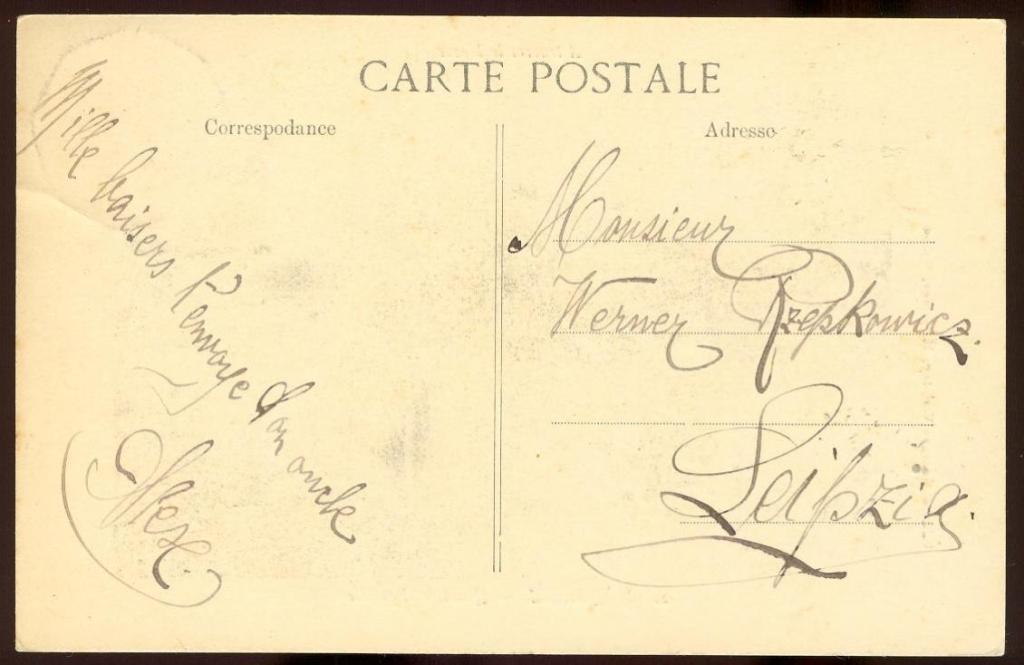 CARTE POSTALE
Correspodance
Adresse
Mille baisers t'envoye ton oncle
Alex.
Monsieur
Werner Rzepkowicz.
Leipzig.